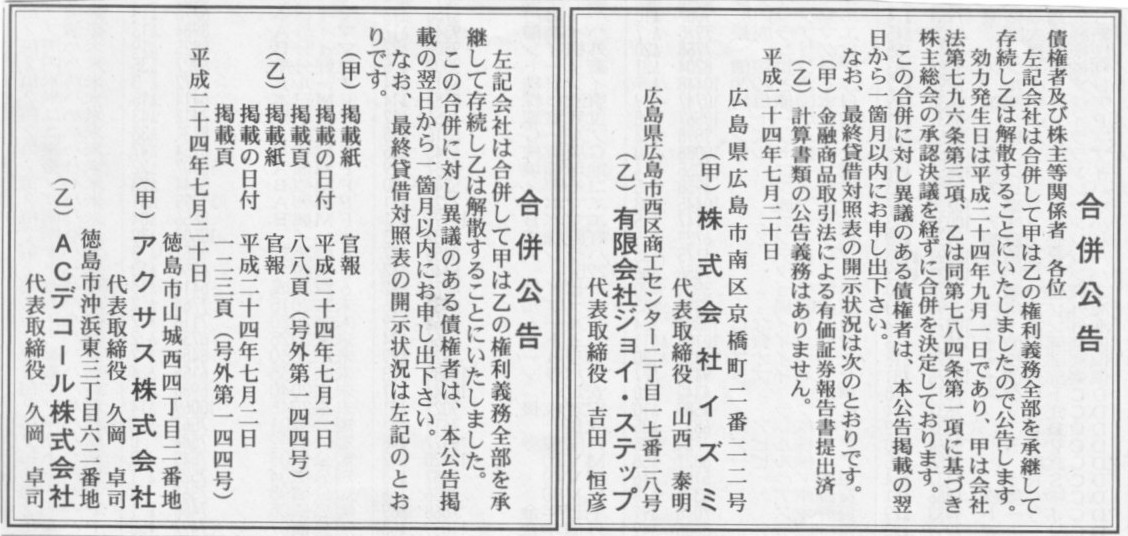 合併公告
債権者及び株主等関係者 各位
左記会社は合併して甲は乙の権利義務全部を承継して
存続し乙は解散することにいたしましたので公告します。
効力発生日は平成二十四年九月一日であり、甲は会社
法第七九六条第三項、乙は同第七八四条第一項に基づき
株主総会の承認決議を経ずに合併を決定しております。
この合併に対し異議のある債権者は、本公告掲載の翌
日から一箇月以内にお申し出下さい。
なお、最終貸借対照表の開示状況は次のとおりです。
(甲)金融商品取引法による有価証券報告書提出済
(乙)計算書類の公告義務はありません。
平成二十四年七月二十日
広島県広島市南区京橋町二番二二号
(甲)株式会社イズミ
代表取締役 山西 泰明
広島県広島市西区商工センター二丁目一七番二八号
(乙)有限会社ジョイ・ステップ
代表取締役 吉田 恒彦
合併公告
左記会社は合併して甲は乙の権利義務全部を承
継して存続し乙は解散することにいたしました。
この合併に対し異議のある債権者は、本公告掲
載の翌日から一箇月以内にお申し出下さい。
なお、最終貸借対照表の開示状況は左記のとお
りです。
(甲)掲載紙 官報
掲載の日付 平成二十四年七月二日
掲載頁 八八頁(号外第一四四号)
(乙)掲載紙 官報
掲載の日付 平成二十四年七月二日
掲載頁 一二三頁(号外第一四四号)
平成二十四年七月二十日
徳島市山城西四丁目二番地
(甲)アクサス株式会社
代表取締役 久岡 卓司
徳島市沖浜東三丁目六二番地
(乙)ACデコール株式会社
代表取締役 久岡 卓司